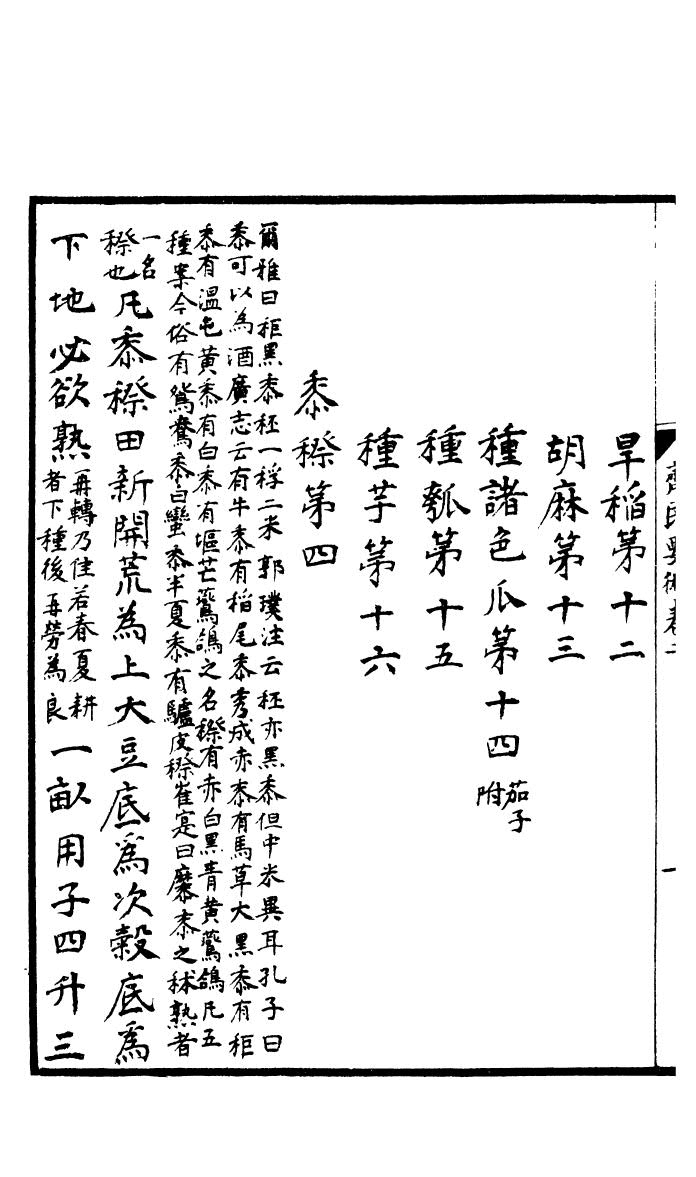 齊民要術卷二
一
旱稻第十二
胡麻第十三
種諸色瓜第十四
茄子
附
種瓠第十五
種芋第十六
黍穄第四
爾雅曰秬黑黍秠一稃二米郭璞注云秠亦黑黍但中米異耳孔子曰
黍可以為酒廣志云有牛黍有稲尾黍秀成赤黍有馬草大黑黍有秬
黍有溫屯黄黍有白黍有堰芒鷰鴿之名穄有赤白黑青黄鷰鴿凡五
種案今俗有鴛鴦黍白蠻黍半夏黍有驢皮穄崔寔曰穈黍之秫熟者
一名
穄也
凡黍穄田新開荒為上大豆底爲次榖底爲
下地必欲熟
再轉乃佳若春夏耕
者下種後再勞為良
一畝用子四升三